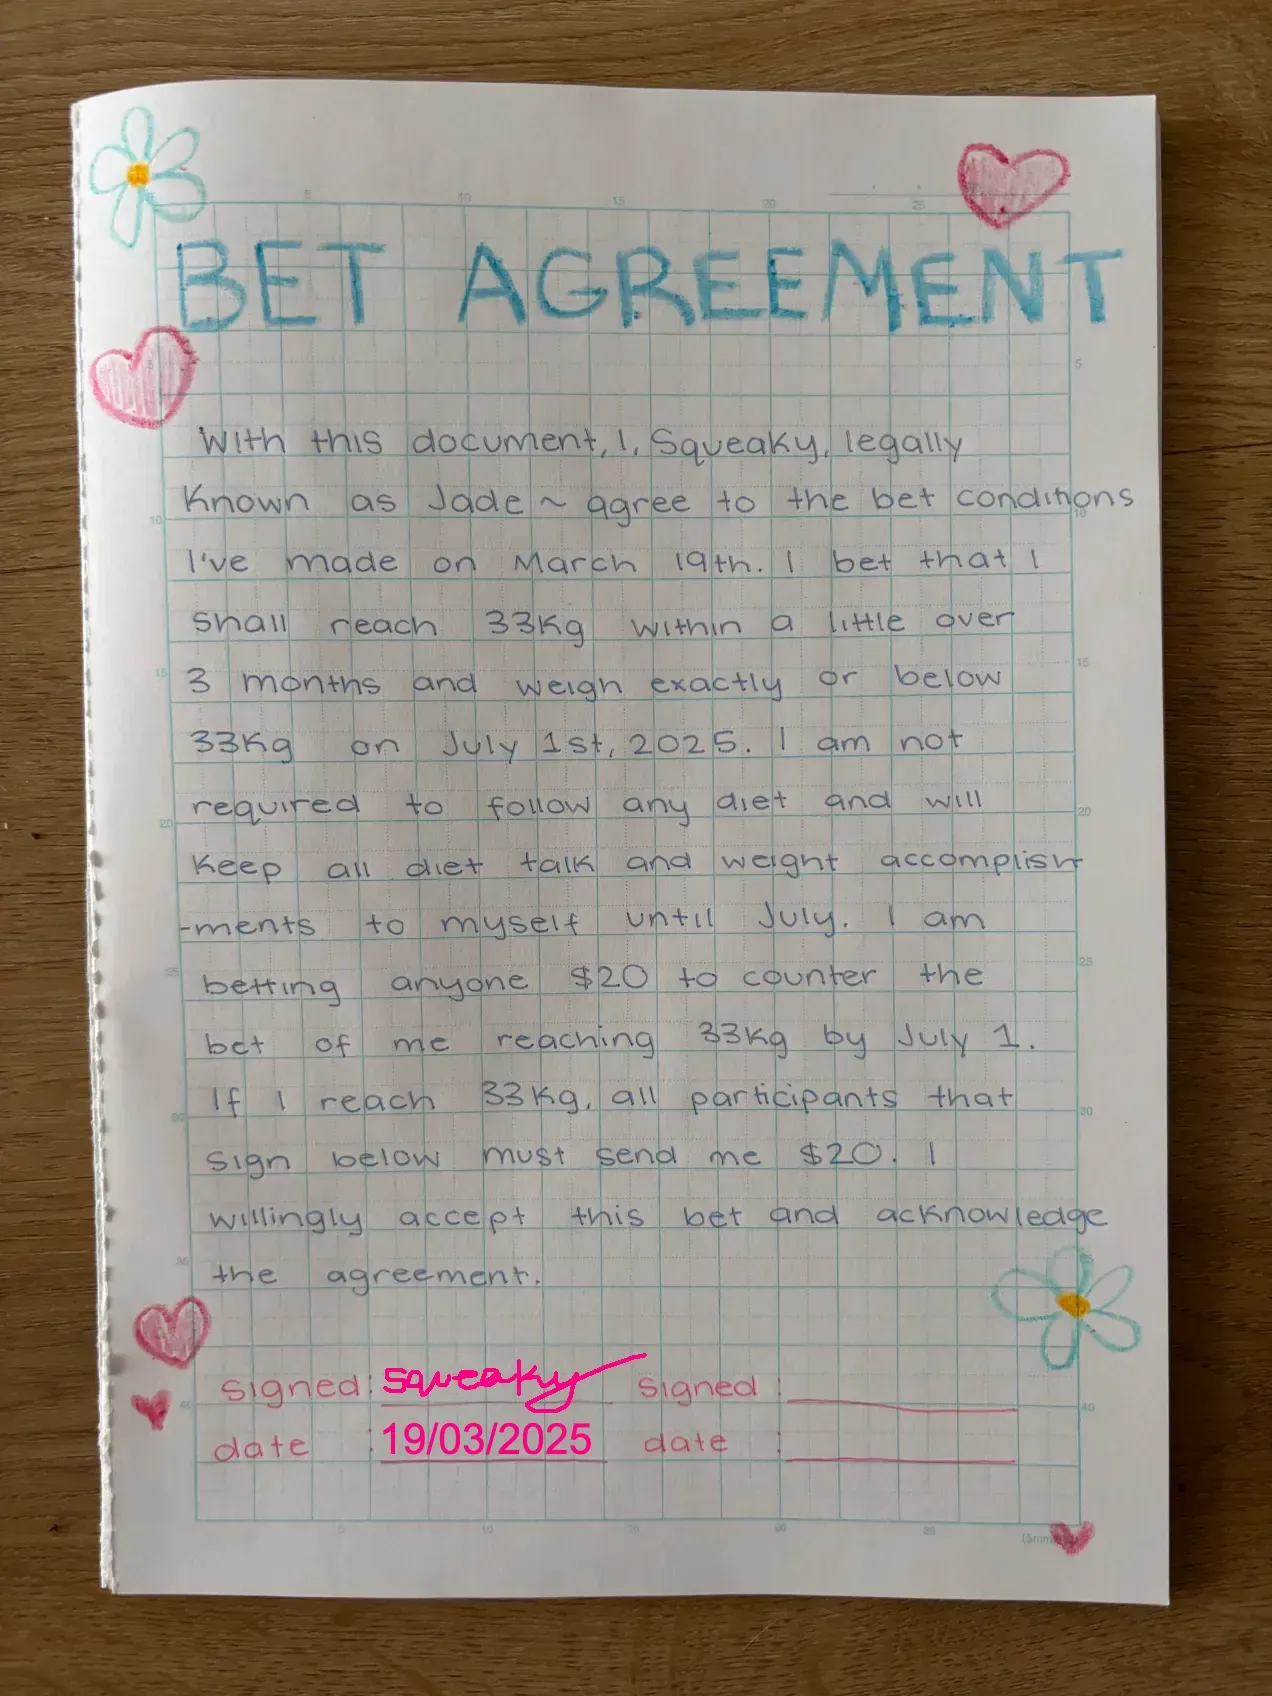 BET AGREEMENT
With this document, I, Squeaky, legally
known as Jade ~ agree to the bet conditions
I've made on March 19th. I bet that I
shall reach 33kg within a little over
3 months and weigh exactly or below
33kg on July 1st, 2025. I am not
required to follow any diet and will
keep all diet talk and weight accomplish
-ments to myself until July. I am
betting anyone $20 to counter the
bet of me reaching 33kg by July 1.
If I reach 33kg, all participants that
sign below must send me $20. I
willingly accept this bet and acknowledge
the agreement.
signed: squeaky signed :
date : 19/03/2025 date :